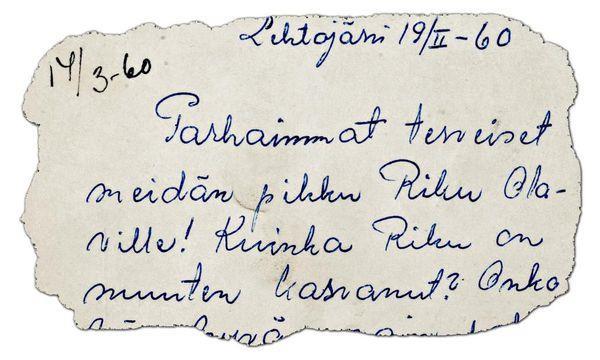 Lehtojärvi 19/II-60
14/3-60
Parhaimmat terveiset
meidän pikku Riku Ola-
ville! Kuinka Riku on
muuten kasvanut? Onko